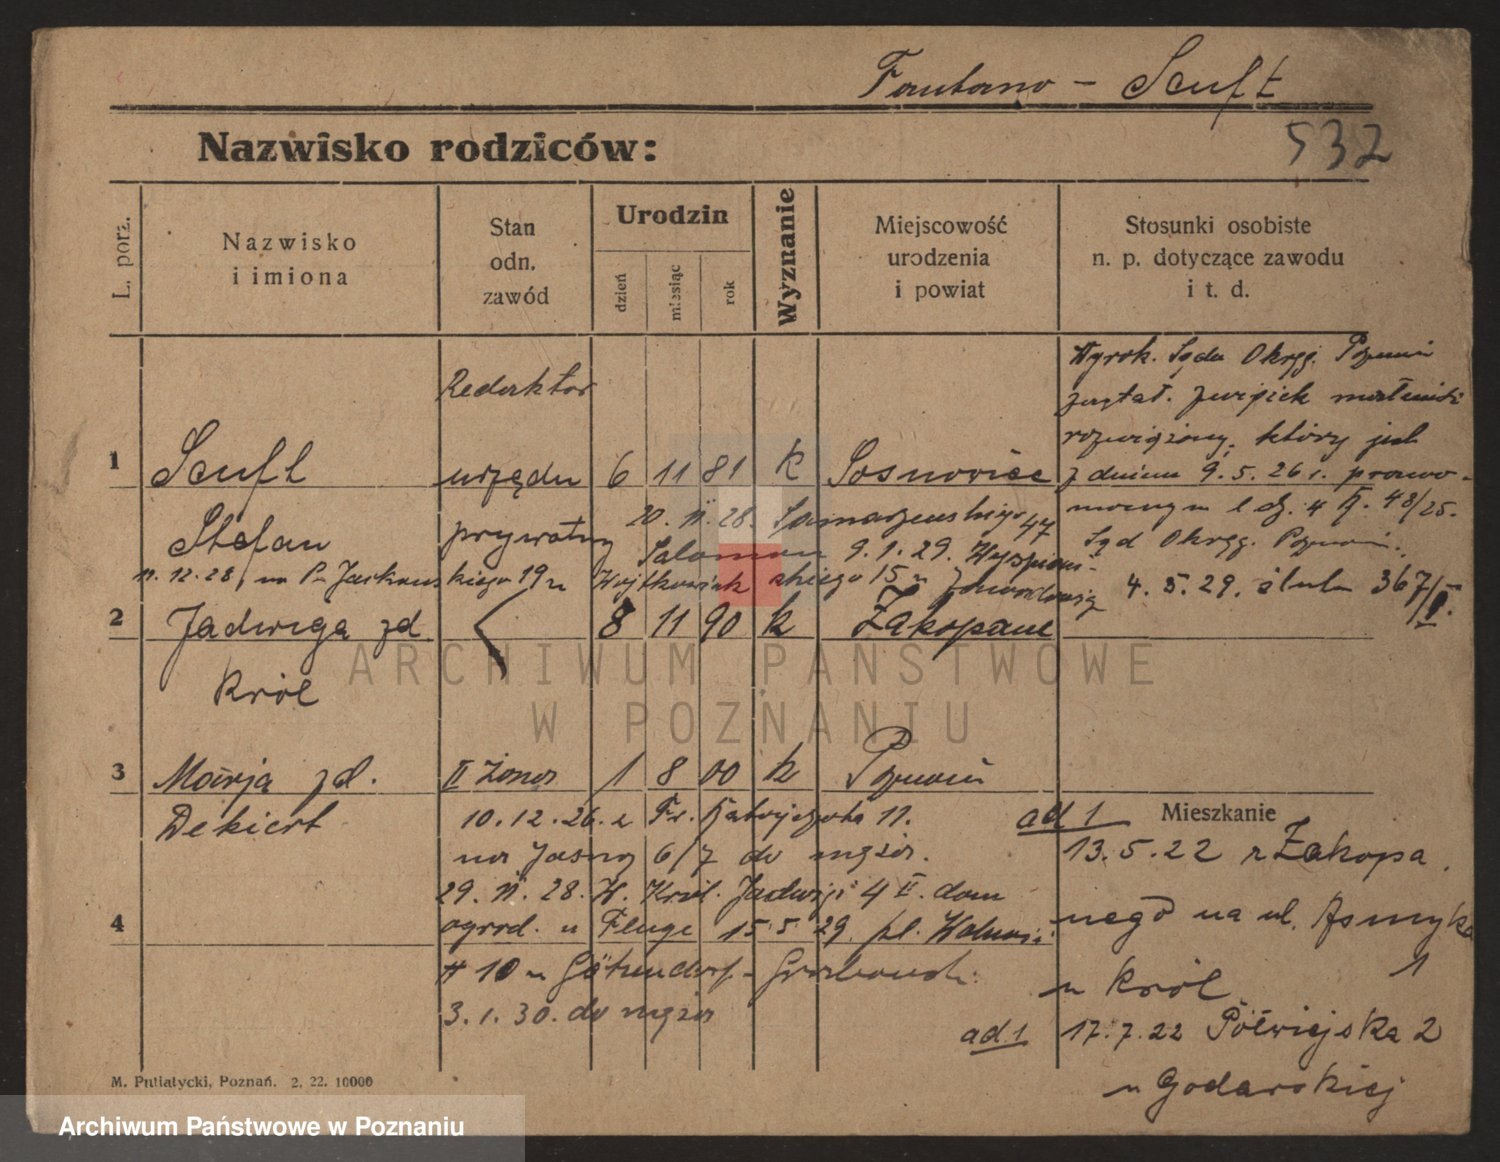 Fantano - Scuft
532
Nazwisko rodziców:
L. porz.
Nazwisko
i imiona
Stan
odn.
zawód
Urodzin
dzień
miesiąc
rok
Wyznanie
Miejscowość
urodzenia
i powiat
Stosunki osobiste
n. p. dotyczące zawodu
i t. d.
Wyrok. Sądu Okręg. Poznań
został. związek małżeński
rozwiązany, który jest
z dniem 9.5.26 r. prawo-
mocnym l dz. 4 48/25.
Sąd Okręg. Poznań.
4. 5. 29. ślub 367/II.
1
Scuft
Stefan
Redaktor
urzędn
prywatny
6 11 81 k Sosnowiec
20. 11. 28. Samarzewskiego 47
Salomon 9.1.29. Wyspiań-
11.12.28. na P. Jackowskiego 19 u Wojtkowiak skiego 15 u
2
Jadwiga zd
Król
8 11 90 k Zakopane
3
Marja zd.
Dekiert
II żona
1 8 00 k Poznań
10.12.26. z Fr. Ratajczaka 11.
na Jasną 6/7 do męża.
29. 11. 28. W. Król. Jadwigi 4 II. dom
4
ogrod. u Fluge 15 5 29. pl. Wolności
10 u
3.1.30. do męża
Mieszkanie
ad 1
13.5.22 z Zakopa
nego na ul. Asnyka
1
u Król
ad. 1
17.7.22 Półwiejska 2
u Godarskiej
M. Putiatycki, Poznań. 2. 22. 10000
ARCHIWUM PAŃSTWOWE
W POZNANIU
Archiwum Państwowe w Poznaniu